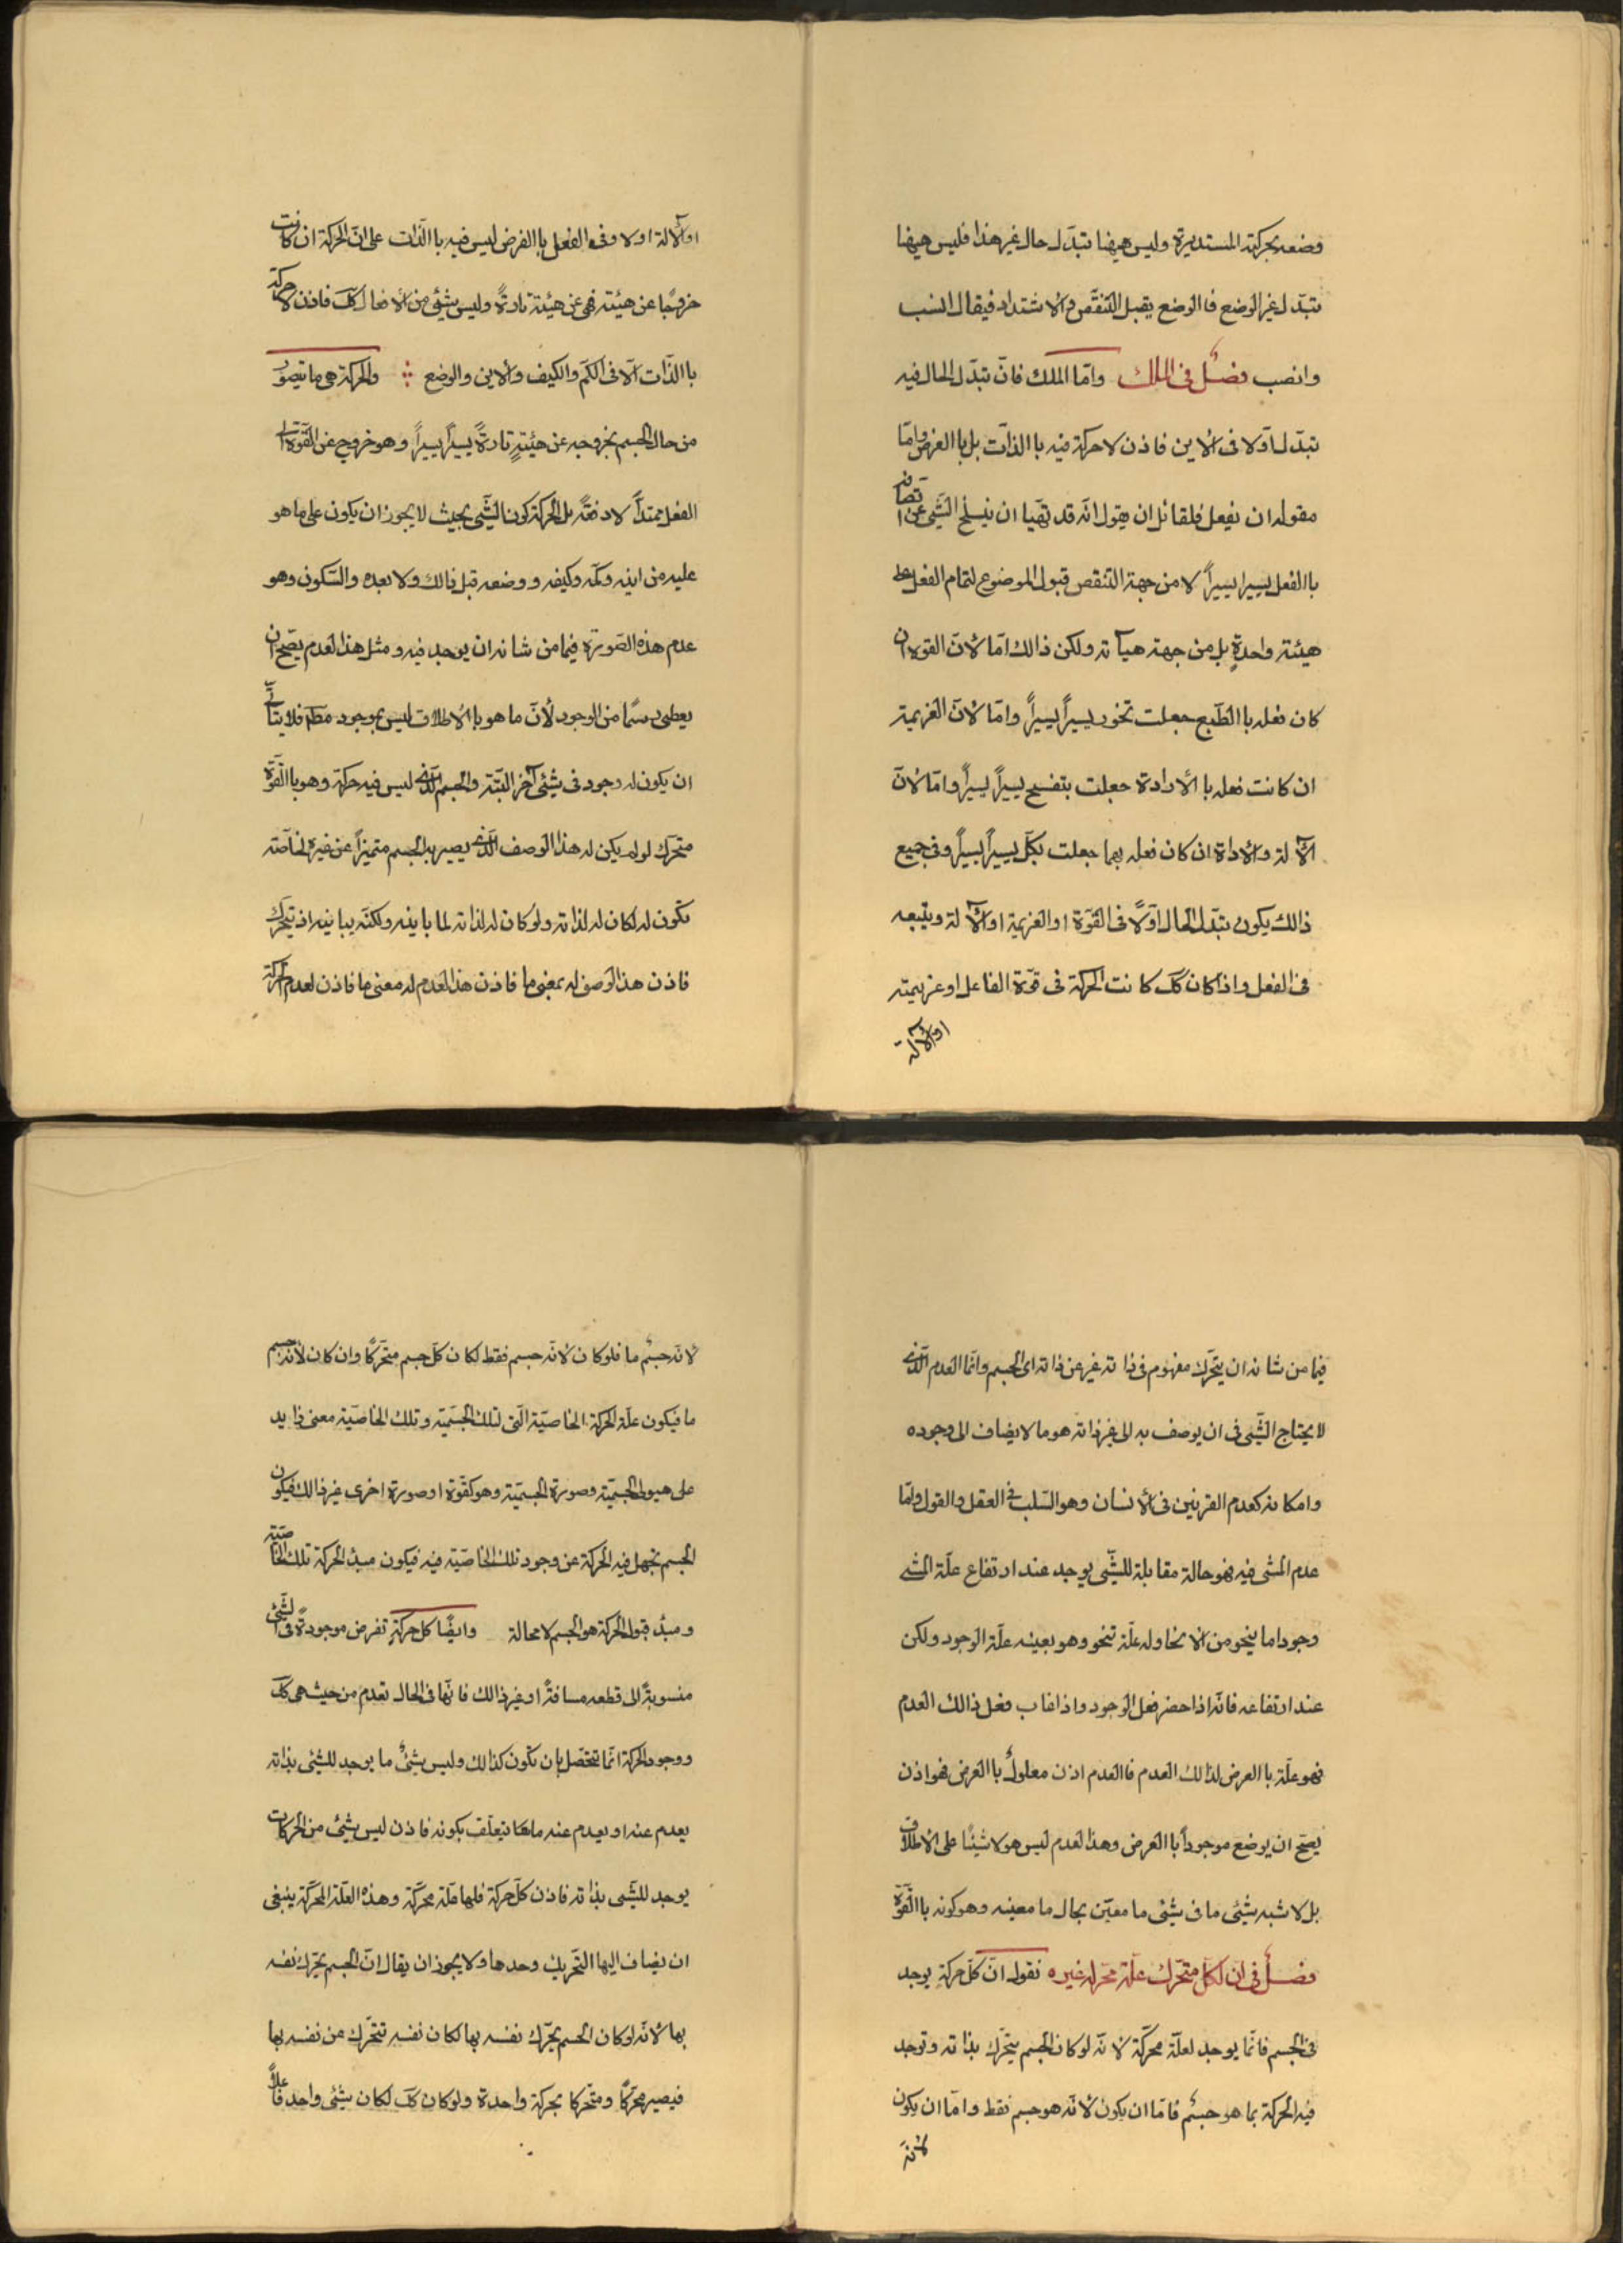 وضعه بحركته المستديرة وليس هيهنا تبدّل حال غير هذا فليس هيهنا
تبدّل لغير الوضع فا الوضع يقبل التنقّص والاشتداد فيقال انسب
وانصب فصلٌ فى الملك وامّا الملك فانّ تبدّل الحال فيه
تبدّل اوّلا فى الاين فاذن لا حركة فيه باالذات بل باالعرض وامّا
مقوله ان يفعل فلقائل ان يقول انّه قد تهيّا ان ينسلخ الشّى عن اتصافه
باالفعل يسيرا يسيراً لا من جهة التنقص قبول الموضوع لتمام الفعل على
هيئته واحدةٍ بل من جهة هيآته ولكن ذالك امّا لانّ القوة ان
كان فعله باالطّبع جعلت تخور يسيراً يسيراً وامّا لانّ العزيمة
ان كانت فعله باالأرادة جعلت بتفسح يسيراً يسيراً وامّا لانّ
الآلة والأداة ان كان فعله بهما جعلت بكلّ يسيراً يسيراً وفى جميع
ذالك يكون تبدّل الحال اوّلاً فى القوّة او العزيمة او الآلة ويتبعه
فى الفعل واذا كان كَك كانت الحركة فى قوّة الفاعل او عزيمته
او الآلة
او الآلة اولا وفى الفعل باالفرض ليس فيه باالذّات على انّ الحركة ان كانت
خروجًا عن هيئته فهى عن هيئة تارةً وليس شئ من الأفعال كَك فاذن لا حركة
باالذّات الّا فى الكمّ والكيف والاين والوضع والحركة هى ما يتصوّر
من حال الجسم بخروجه عن هيئةٍ تارةً يسيراً يسيراً وهو خروج عن القوّة الى
الفعل ممتدّاً لا دفعةً بل الحركة كون الشّى بحيث لا يجوز ان يكون على ما هو
عليه من اينه وكمّه وكيفه ووضعه قبل ذالك ولا بعده والسّكون وهو
عدم هذه الصّورة فيما من شانه ان يوجد فيه ومثل هذا العدم يصّح ان
يعطى رسمًا من الوجود لأنّ ما هو باالاطلاق ليس بموجود مطلقا فلا يتأتّى
ان يكون له وجود فى شئى آخر البتّة والجسم الّذى ليس فيه حركة وهو باالقوّة
متحرّك لو لم يكن له هذا الوصف الّذى يصير به الجسم متميزاً عن غيره لخاصّته
تكون له لكان له لذاته ولو كان له لذاته لما باينه ولكنّه يباينه اذ تيحرّك
فاذن هذا الوصف له بمعنى ما فاذن هذا العدم له معنى ما فاذن لعدم الحركة
فيما من شانه ان يتحّرك مفهوم فى ذاته غير عن ذاته اى الجسم وانّما العدم الّذى
لا يحتاج الشّى فى ان يوصف به الى غير ذاته هو ما لا يضاف الى وجوده
وامكانه كعدم القرنين فى الأنسان وهو السّلب فى العقل والقول وامّا
عدم المشى فيه فهو حالة مقابلة للشّى يوجد عند ارتفاع علّة المشى
وجودا ما بنحو من الانحا وله علّة تنحو وهو بعينه علّة الوجود ولكن
عند ارتفاعه فانّه اذا حضر فعل الوجود واذا غاب فعل ذالك العدم
فهو علّة باالعرض لذالك العدم فاالعدم اذن معلولٌ باالعرض فهو اذن
يصّح ان يوضع موجوداً باالعرض وهذا العدم ليس هو لا شيئًا على الاطلاق
بل لا شبه شئى ما فى شئى ما معيّن بحال ما معينه وهو كونه باالقوّة
فصلٌ فى ان لكلّ متحّرك علّة محرّكه غيره نقول انّ كلّ حركة يوجد
فى الجسم فانّما يوجد لعلّة محرّكة لانّه لو كان الجسم يتحّرك بذاته وتوجد
فيه الحركة بما هو جسمٌ فامّا ان يكون لأنّه هو جسم فقط وامّا ان يكون
لانّه
لانّه جسمٌ ما فلو كان لانّه جسم فقط لكان كلّ جسم متحّركًا وان كان لأنّه جسم
ما فيكون علّة الحركة الخاصيّة الّتى لتلك الجسميّة وتلك الخاصيّة معنى زايد
على هيولى الجسميّة وصورة الجسميّة وهو كقوّة او صورة اخرى غير ذالك فيكون
الجسم تجهل فيه الحركة عن وجود تلك الخاصيّة فيه فيكون مبدء الحركة تلك الخاصيّة
ومبدء قبول الحركة هو الجسم لا محالة وايضًا كل حركةٍ تفرض موجودةً فى الشّئ
منسوبةً الى قطعه مسافةً او غير ذالك فانّها فى الحال تعدم من حيث هى كَك
ووجود الحركة انّما تتحصّل بان تكون كذالك وليس شئٌ ما يوجد للشئى بذاته
يعدم عنه او يعدم عنه مالها تيعلّق بكونه فاذن ليس شئى من الحركات
يوجد للشّى بذاته فاذن كلّ حركة فلها علّة محرّكة وهذه العلّة المحرّكة ينبغى
ان يضاف اليها التّحريك وحدها ولا يجوز ان يقال انّ الجسم يحّرك نفسه
بها لانّه لو كان الجسم يحرّك نفسه بها لكان نفسه تتحّرك عن نفسه بها
فيصير محرّكاً ومتحّركا بحركة واحدة ولو كان كَك لكان شئى واحد فاعلاً